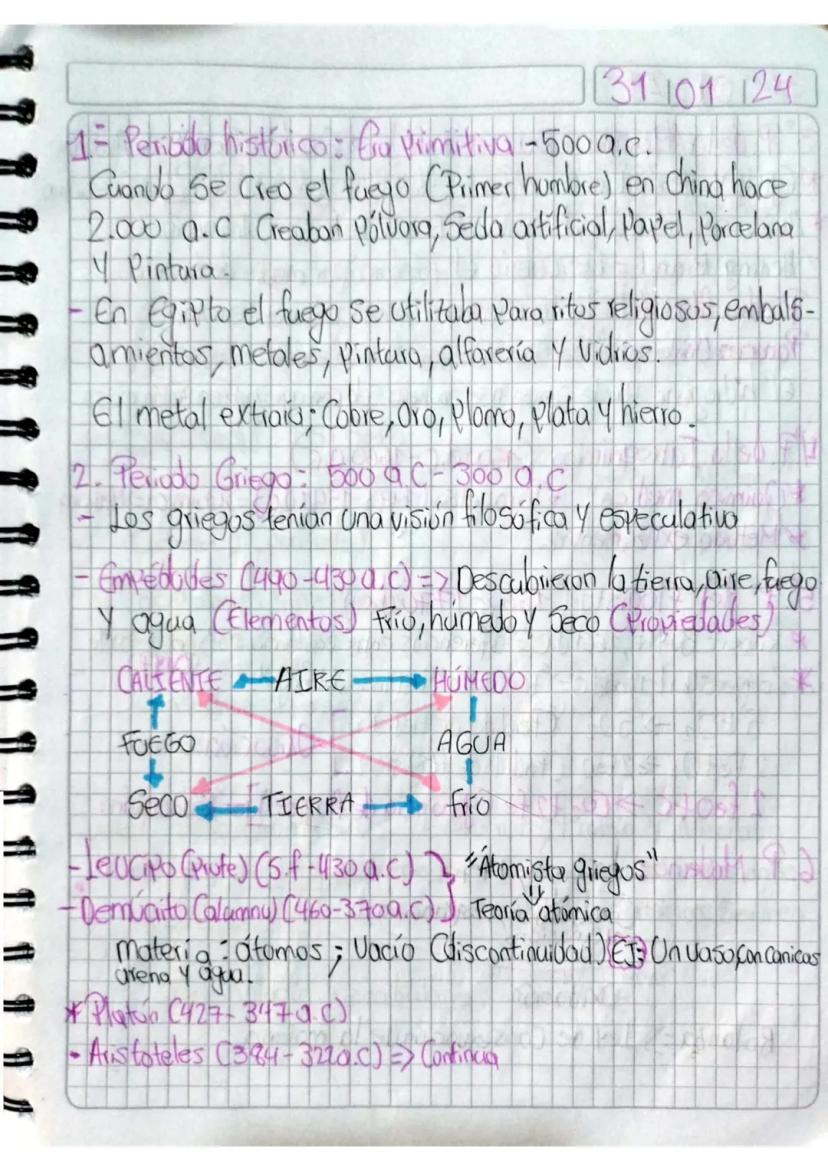 31 01 24
1.- Periodo histórico: Era primitiva - 500 a.c.
Cuando se creo el fuego (Primer hombre) en china hace
2.000 a.c Creaban Pólvora, Seda artificial, Papel, Porcelana
y Pintura.
- En Egipto el fuego se utilizaba para ritos religiosos, embals-
amientos, metales, pintura, alfarería y Vidrios.
El metal extraio; Cobre, Oro, Plomo, Plata y hierro.
2. Periodo Griego: 500 a.C - 300 a.C
- Los griegos tenían una visión filosófica y especulativa
- Empédocles (490-430 a.c) => Descubrieron la tierra, aire, fuego
y agua (Elementos) Frío, húmedo y Seco (Propiedades)
CALIENTE AIRE HÚMEDO
FUEGO AGUA
Seco TIERRA frío
- Leucipo (Profe) (S.f - 430 a.c) "Átomista griegos"
- Demócrito (alumno) (460-370 a.c) Teoría atómica
materia: átomos; Vacío (discontinuidad) EJ: Un vaso con canicas
arena y agua.
* Platón (427 - 347 a.c)
- Aristoteles (384 - 322 a.c) =>